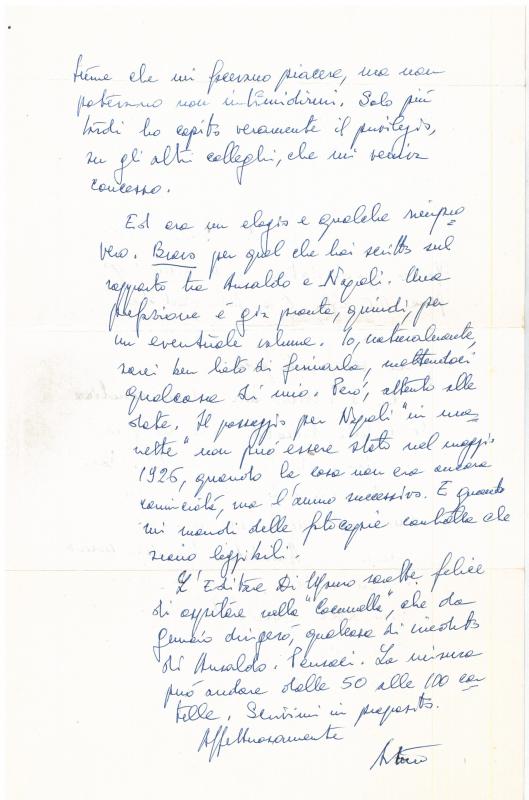 time che mi facevano piacere, ma non
potevano non intimidirmi. Solo più
tardi ho capito veramente il privilegio,
su gli altri colleghi, che mi veniva
concesso.
Ed ora un elogio e qualche rimpro=
vero. Bravo per quel che hai scritto sul
rapporto tra Ansaldo e Napoli. Una
prefazione è già pronta, quindi, per
un eventuale volume. Io, naturalmente,
sarei ben lieto di firmarla, mettendoci
qualcosa di mio. Però, attento alle
date. Il passaggio per Napoli "in ma=
nette" non può essere stato nel maggio
1926, quando la cosa non era ancora
cominciata, ma l'anno successivo. E quando
mi mandi delle fotocopie controlla che
siano leggibili.
L'Editore Di Mauro sarebbe felice
di ospitare nella "Coccinella", che da
Gennaio dirigerò, qualcosa di inedito
di Ansaldo. Pensaci. La misura
può andare dalle 50 alle 100 car
telle. Scrivimi in proposito.
Affettuosamente